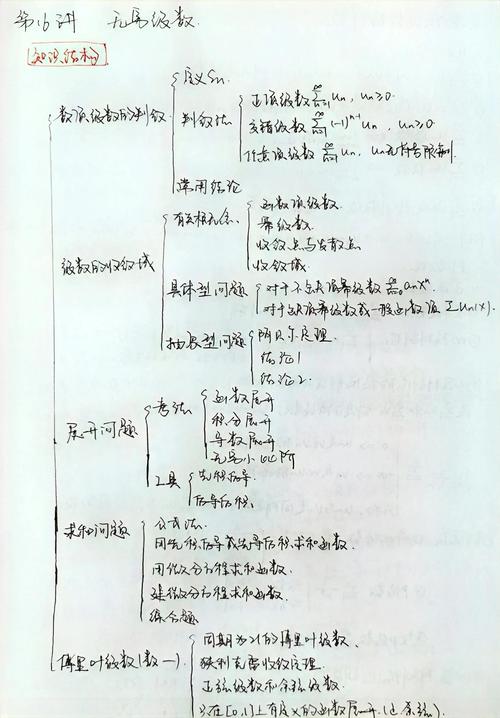 第16讲 无穷级数.
知识结构
数项级数的判敛
定义Sn.
判敛法
正项级数 ∞∑n=1 un, un≥0.
交错级数 ∞∑n=1 (-1)ⁿ⁻¹un, un≥0.
任意项级数 ∞∑n=1 un, un无符号限制.
常用结论
级数的收敛域
有关概念
函数项级数
幂级数
收敛点与发散点
收敛域.
具体型问题
对于不缺项幂级数 ∞∑n=0 anxⁿ
对于缺项幂级数或一般函数项 ∑un(x).
抽象型问题
阿贝尔定理.
结论1
结论2.
展开问题
考法
函数展开
积分展开
导数展开
无穷小比阶
工具
先积后导
后导后积.
求和问题
公式法.
用先积后导或先导后积求和函数.
用微分方程求和函数.
建微分方程求和函数.
综合题
傅里叶级数(数一)
周期为2l的傅里叶级数.
狄利克雷收敛定理.
正弦级数和余弦级数.
只在[0,l]上有定义的函数展开.(正余弦).